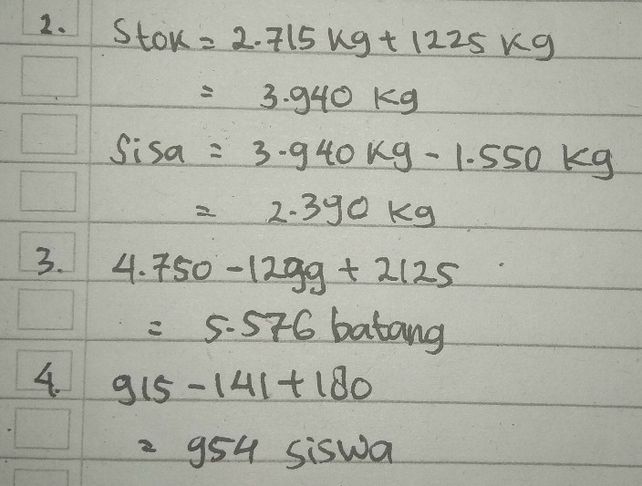 2. Stok = 2.715 kg + 1225 kg
= 3.940 kg
Sisa = 3.940 kg - 1.550 kg
= 2.390 kg
3. 4.750 - 1299 + 2125
= 5.576 batang
4. 915 - 141 + 180
= 954 siswa